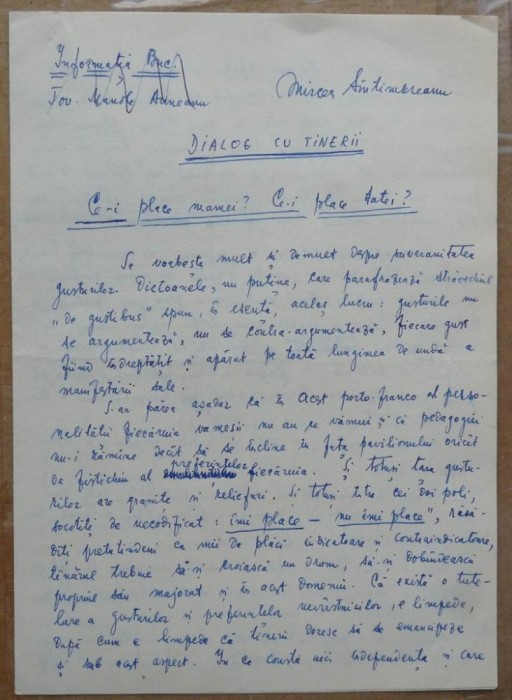 Informația Buc.
Tov. Manole Auneanu
Mircea Sîntimbreanu
DIALOG CU TINERII
Ce-i place mamei? Ce-i place tatei?
Se vorbește mult și demult despre suveranitatea
gusturilor. Dictoanele, nu puține, care parafrazează străvechiul
„de gustibus" spun, în esență, același lucru: gusturile nu
se argumentează, nu se contra-argumentează, fiecare gust
fiind îndreptățit și apărat pe toată lungimea de undă a
manifestării sale.
S-ar părea așadar că în acest porto-franco al perso-
nalității fiecăruia vameșii nu au ce vămui și că pedagogiei
nu-i rămîne decît să se încline în fața pavilionului oricît
de fistichiu al preferințelor fiecăruia. Și totuși țara gustu-
rilor are granițe și reliefuri. Și totuși între cei doi poli,
socotiți de necodificat: „îmi place – nu îmi place", răsă-
diți pretutindeni ca mii de plăci indicatoare și contraindicatoare,
tînărul trebuie să-și croiască un drum, să-și dobîndească
propriul său majorat și în acest domeniu. Că există o tute-
lare a gusturilor și preferințelor nevîrstnicilor, e limpede,
după cum e limpede că tinerii doresc să se emancipeze
și sub acest aspect. In ce constă aici independența și care